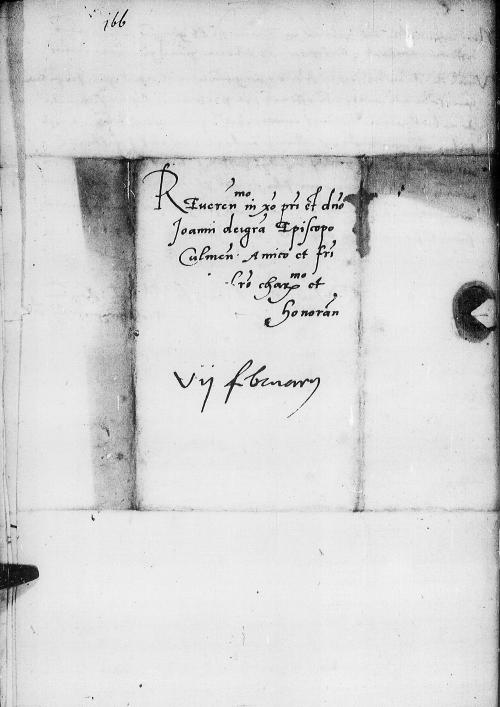 166
Reveren^mo in xo pri et dno
Joanni dei gra Episcopo
Culmen. Amico et fri
nro char^mo et
honoran
vij februarij